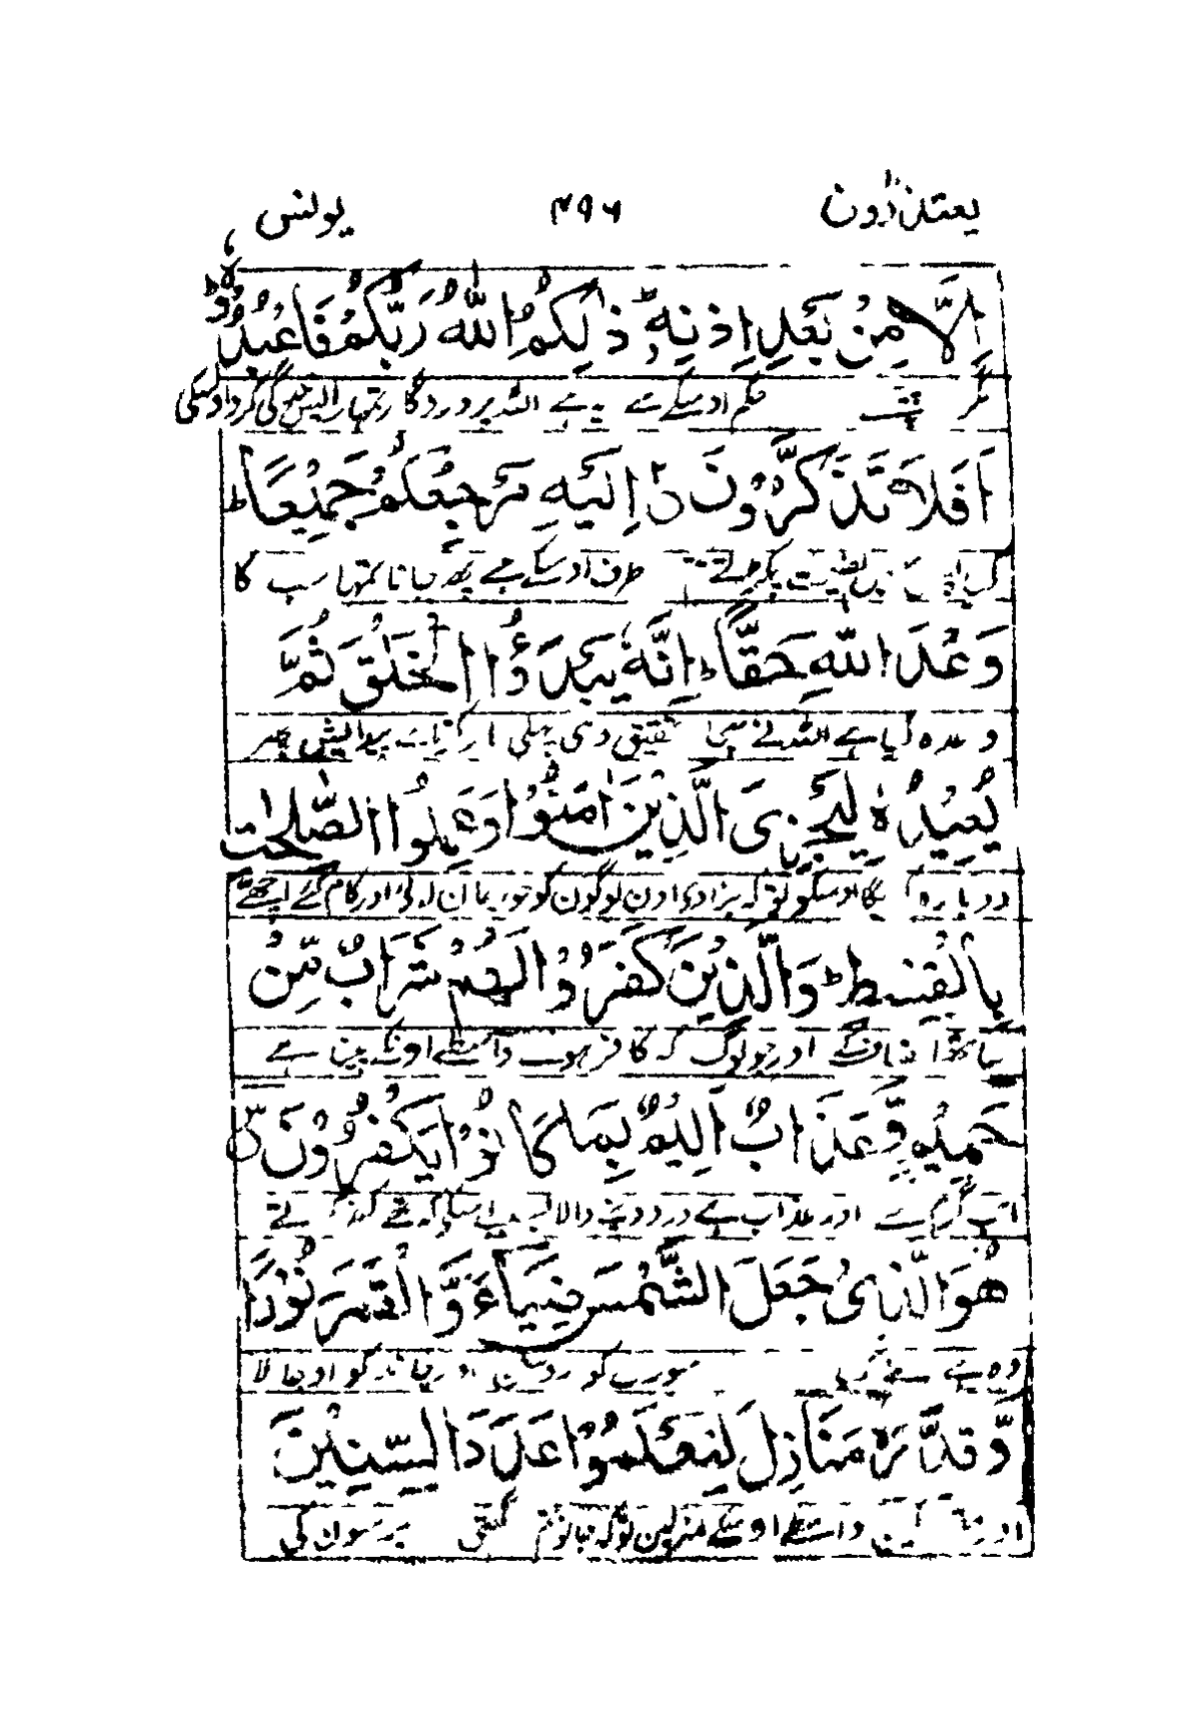 یعتذرون ۴۹۶ یونس
اِلَّا مِنْۢ بَعْدِ اِذْنِهٖ ؕ ذٰلِكُمُ اللّٰهُ رَبُّكُمْ فَاعْبُدُوْهُ ؕ
مگر حکم اوسکے سے یہ ہے اللہ پروردگار تمہارا پس بندگی کرو اوسکی
اَفَلَا تَذَكَّرُوْنَ اِلَيْهِ مَرْجِعُكُمْ جَمِيْعًا ؕ
نصیحت پکڑتے طرف اوسکے ہے پھر جانا تمہا سب کا
وَعْدَ اللّٰهِ حَقًّا ؕ اِنَّهٗ يَبْدَؤُا الْخَلْقَ ثُمَّ
وعدہ کیا ہے اللہ نے سچا تحقیق وہی پہلی بار کرتا ہے پیدایش پھر
يُعِيْدُهٗ لِيَجْزِىَ الَّذِيْنَ اٰمَنُوْا وَعَمِلُوا الصّٰلِحٰتِ
دوبارہ کریگا اوسکو توکہ جزا دی اون لوگون کو جو ایمان لائی اور کام کئے اچھے
بِالْقِسْطِ ؕ وَالَّذِيْنَ كَفَرُوْا لَهُمْ شَرَابٌ مِّنْ
ساتھ انصاف کے اور جو لوگ کہ کافر ہوے واسطے اونکے پینا ہے
حَمِيْمٍ وَّعَذَابٌ اَلِيْمٌۢ بِمَا كَانُوْا يَكْفُرُوْنَ
آب گرم سے اور عذاب ہے درد دینے والا بسبب اسکے کہ تھے کفر کرتے
هُوَ الَّذِىْ جَعَلَ الشَّمْسَ ضِيَآءً وَّالْقَمَرَ نُوْرًا
وہ ہے جسنے کیا سورج کو روشن اور چاند کو اوجالا
وَّقَدَّرَهٗ مَنَازِلَ لِتَعْلَمُوْا عَدَدَ السِّنِيْنَ
اور مقرر کین واسطے اوسکے منزلین توکہ جانو تم گنتی برسون کی